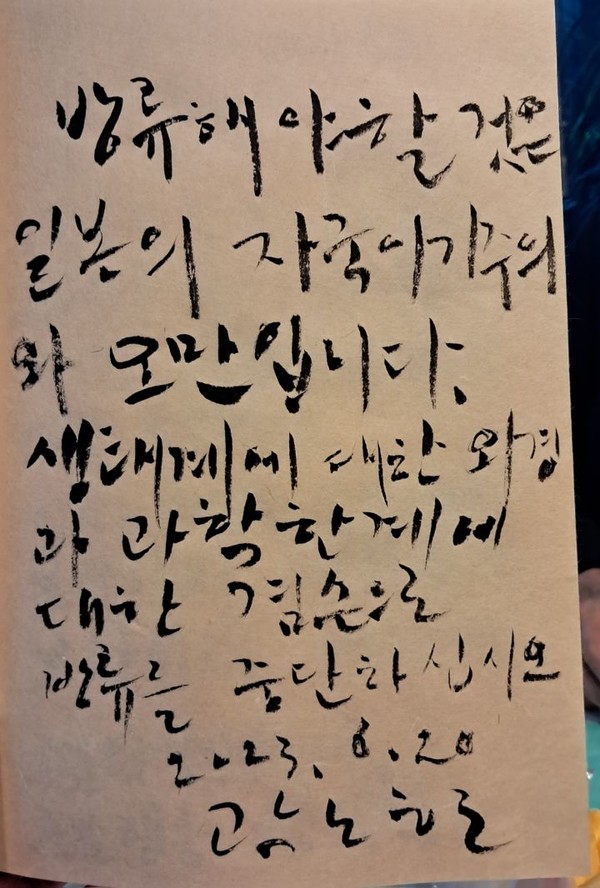 방류해야할 것은
일본의 자국이기주의
와 오만입니다.
생태계에 대한 외경
과 과학한계에
대한 겸손으로
방류를 중단하십시오
2023. 6. 20